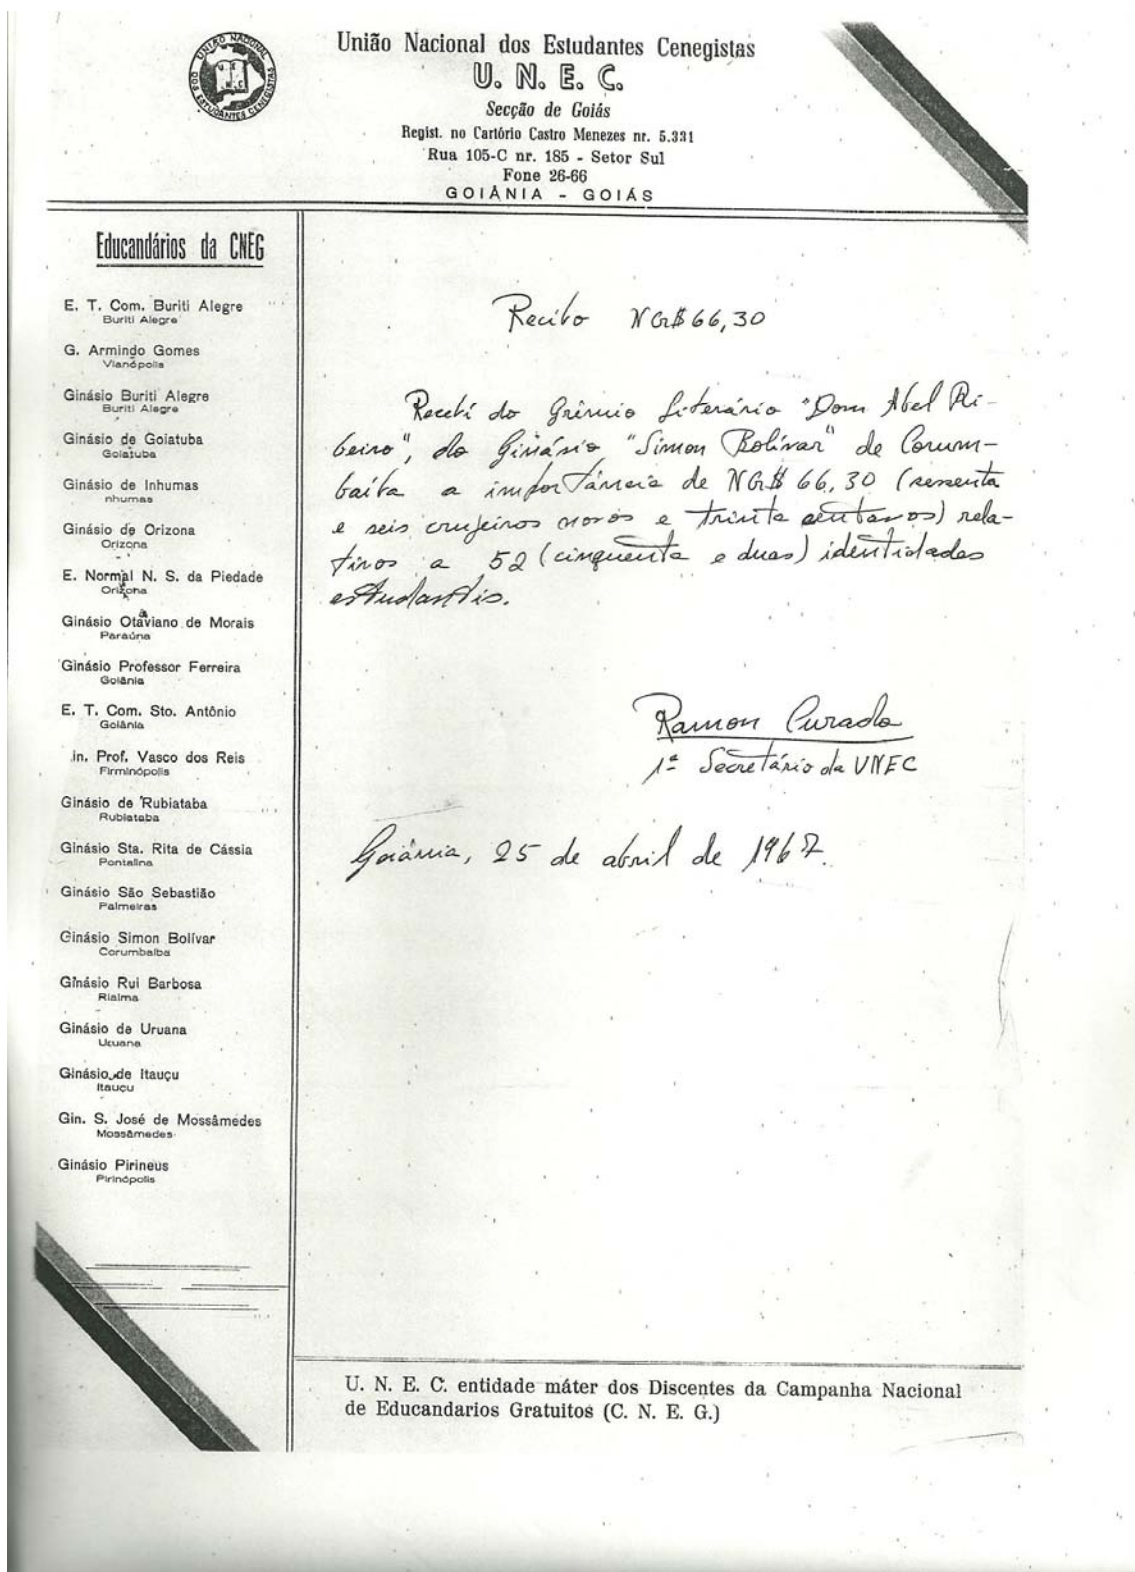 UNIÃO NACIONAL
DOS ESTUDANTES CENEGISTAS
U. E.
N. C.
União Nacional dos Estudantes Cenegistas
U. N. E. C.
Secção de Goiás
Regist. no Cartório Castro Menezes nr. 5.331
Rua 105-C nr. 185 - Setor Sul
Fone 26-66
GOIÂNIA - GOIÁS
Educandários da CNEG
E. T. Com. Buriti Alegre
Buriti Alegre
G. Armindo Gomes
Vianópolis
Ginásio Buriti Alegre
Buriti Alegre
Ginásio de Goiatuba
Goiatuba
Ginásio de Inhumas
nhumas
Ginásio de Orizona
Orizona
E. Normal N. S. da Piedade
Orizona
Ginásio Otaviano de Morais
Paraúna
Ginásio Professor Ferreira
Goiânia
E. T. Com. Sto. Antônio
Goiânia
in. Prof. Vasco dos Reis
Firminópolis
Ginásio de Rubiataba
Rubiataba
Ginásio Sta. Rita de Cássia
Pontalina
Ginásio São Sebastião
Palmeiras
Ginásio Simon Bolívar
Corumbaíba
Ginásio Rui Barbosa
Rialma
Ginásio de Uruana
Uruana
Ginásio de Itauçu
Itauçu
Gin. S. José de Mossâmedes
Mossâmedes
Ginásio Pirineus
Pirinópolis
Recibo NCr$ 66,30
Recebí do Grêmio Literário "Dom Abel Ri-
beiro", do Ginásio "Simon Bolívar" de Corum-
baíba a importância de NCr$ 66,30 (sessenta
e seis cruzeiros novos e trinta centavos) rela-
tivos a 52 (cinquenta e duas) identidades
estudantis.
Ramon Curado
1º Secretário da UNEC
Goiânia, 25 de abril de 1967.
U. N. E. C. entidade máter dos Discentes da Campanha Nacional
de Educandarios Gratuitos (C. N. E. G.)